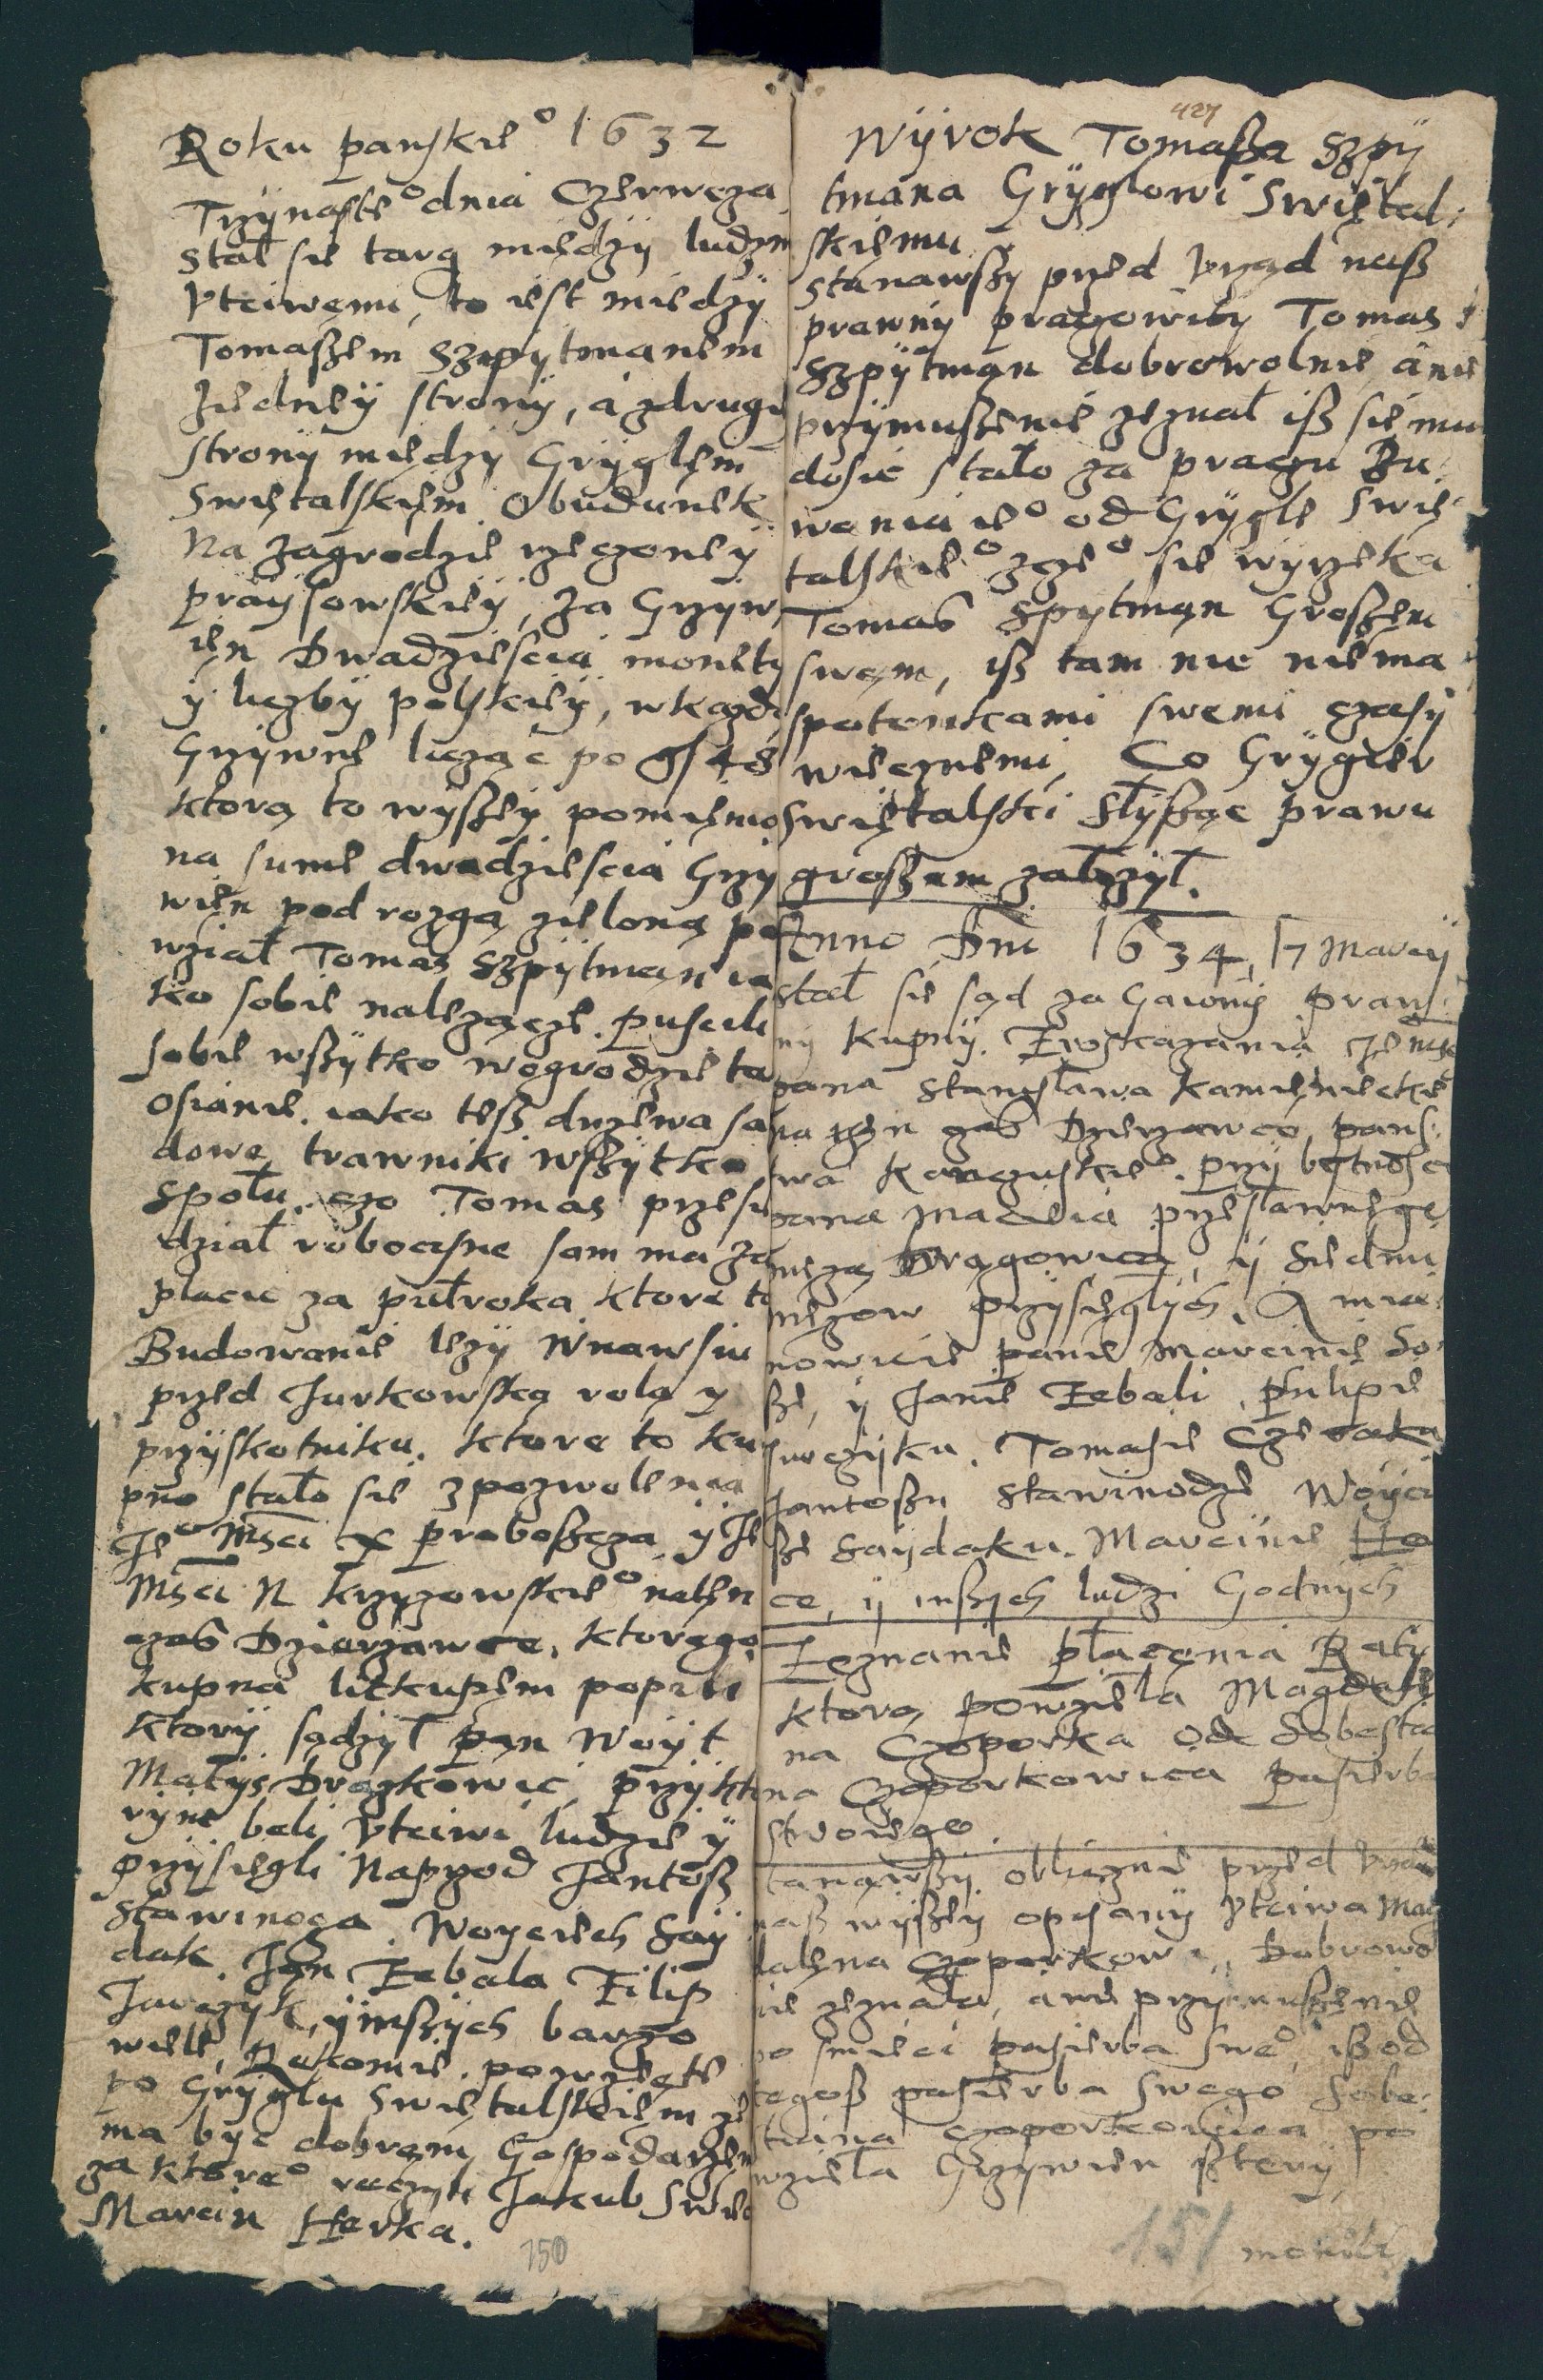 Roku panskie° 1632
Trzÿnaste° dnia Czerwcza
stał sie targ miedzÿ ludzm
Vtciwemi, to iest miedzÿ
Tomaszem Szpÿtmanem
Ziedneÿ stronÿ, a zdrugi
stronÿ miedzÿ Grÿglem
Swiętalskiem. O budunek
Na Zagrodzie rzeczoneÿ
praÿsowskieÿ, Za Grzÿw,
ien Dwadziescia monetÿ
ÿ liczbÿ polskieÿ, w kazdÿ
Grzÿwne licząc po gs 48
ktorą to wÿszeÿ pomienio
na sume dwadziescia Grzÿ
wien pod rozgą zieloną po
wział Tomas Szpÿtman ia
ko sobie nalezącze. Puscili
sobie wszÿtko wogrodzie ta
osianie. iako tesz drzewa sa
dowe, trawniki wszÿtko
społu. czo Tomas przesie
dział robocisne sam ma Za
placic za pułroka ktore to
Budowanie lezÿ Wnawsiu
przed Jurkowską rolą y
przÿskotniku. ktore to ku
pno stało sie z pozwolenia
Je° Msci X proboszcza, ÿ Je
Msci N krzyzowskie° naten
czas Dzierzawce, ktorego
kupna litkupem popili
ktorÿ sądzÿł pan Woÿt
Matÿs Drozkowic, przÿ kto
rÿm beli Vtciwi ludzie ÿ
przÿsiegli Naprzod Jantosz
Stawinoga. Woyciech Saÿ
dak. Jan Zebala Filip
Jurczyk, ÿ inszÿch barzo
wiele, Rekomie. powziete
po Grÿglu Swiętalskiem ze
ma bÿc dobrem Gospodarzem
za ktore° reczyli Jakub Swie
Marcin Herka.
150
427
Wÿrok Tomasza Szpÿ
tmana Grÿglowi Swiętal:
skiemu
Stanawszÿ przed Vrząd nasz
prawnÿ pracowitÿ Tomas
Szpÿtman dobrowolnie, a nie
przÿmuszenie zeznał isz sie mu
dosic stało za pracu Bu
wania ie° od Grÿgle Swię
talskie° zcze° sie wÿrzeka
Tomas Szpytman Groszem
swem, isz tam nic nie ma
spotomkami swemi czasÿ
wiecznemi, Co Grÿgier
Swiętalski słÿsząc prawu
groszem załozÿł.
Anno Dni 1634, 17 Marcÿ
stał sie sąd za Gaionÿ praw
nÿ kupnÿ. Zroskazania Je Mse
pana Stanisława kamienieckie
na ten czas Dzierzawcÿ, pans
twa Kanczuskie°. przÿ bÿtnosci
pana Macieia przesławnego
meza Drągowica, ÿ siedmi
mezow przysieglÿch. A mia
nowicie panie Marcinie So
sze, ÿ Janie Zebali. Philipie
Jurczÿku. Tomasie Czeraku
Jantoszu Stawinodze Woÿci
sze Saÿdaku. Marcinie Ho
ce, ÿ inszÿch ludzi Godnÿch
Zeznanie płacenia Ratÿ
ktorą powzieła Magdale
na Czoporka Od Sobestia
na Czoporkowica pasierba
swoiego.
tanawszÿ oblicznie przed Vrząd
nasz wÿszeÿ opisanÿ Vtciwa Mag
dalena Czoporkowa, Dobrowo
nie zeznała, a nie przÿmuszenie
po smierci pasierba swe°, isz od
tegosz pasierba swego Sobe
stiana Czoporkowica po
wzieła Grzywien sztery
151 monetÿ